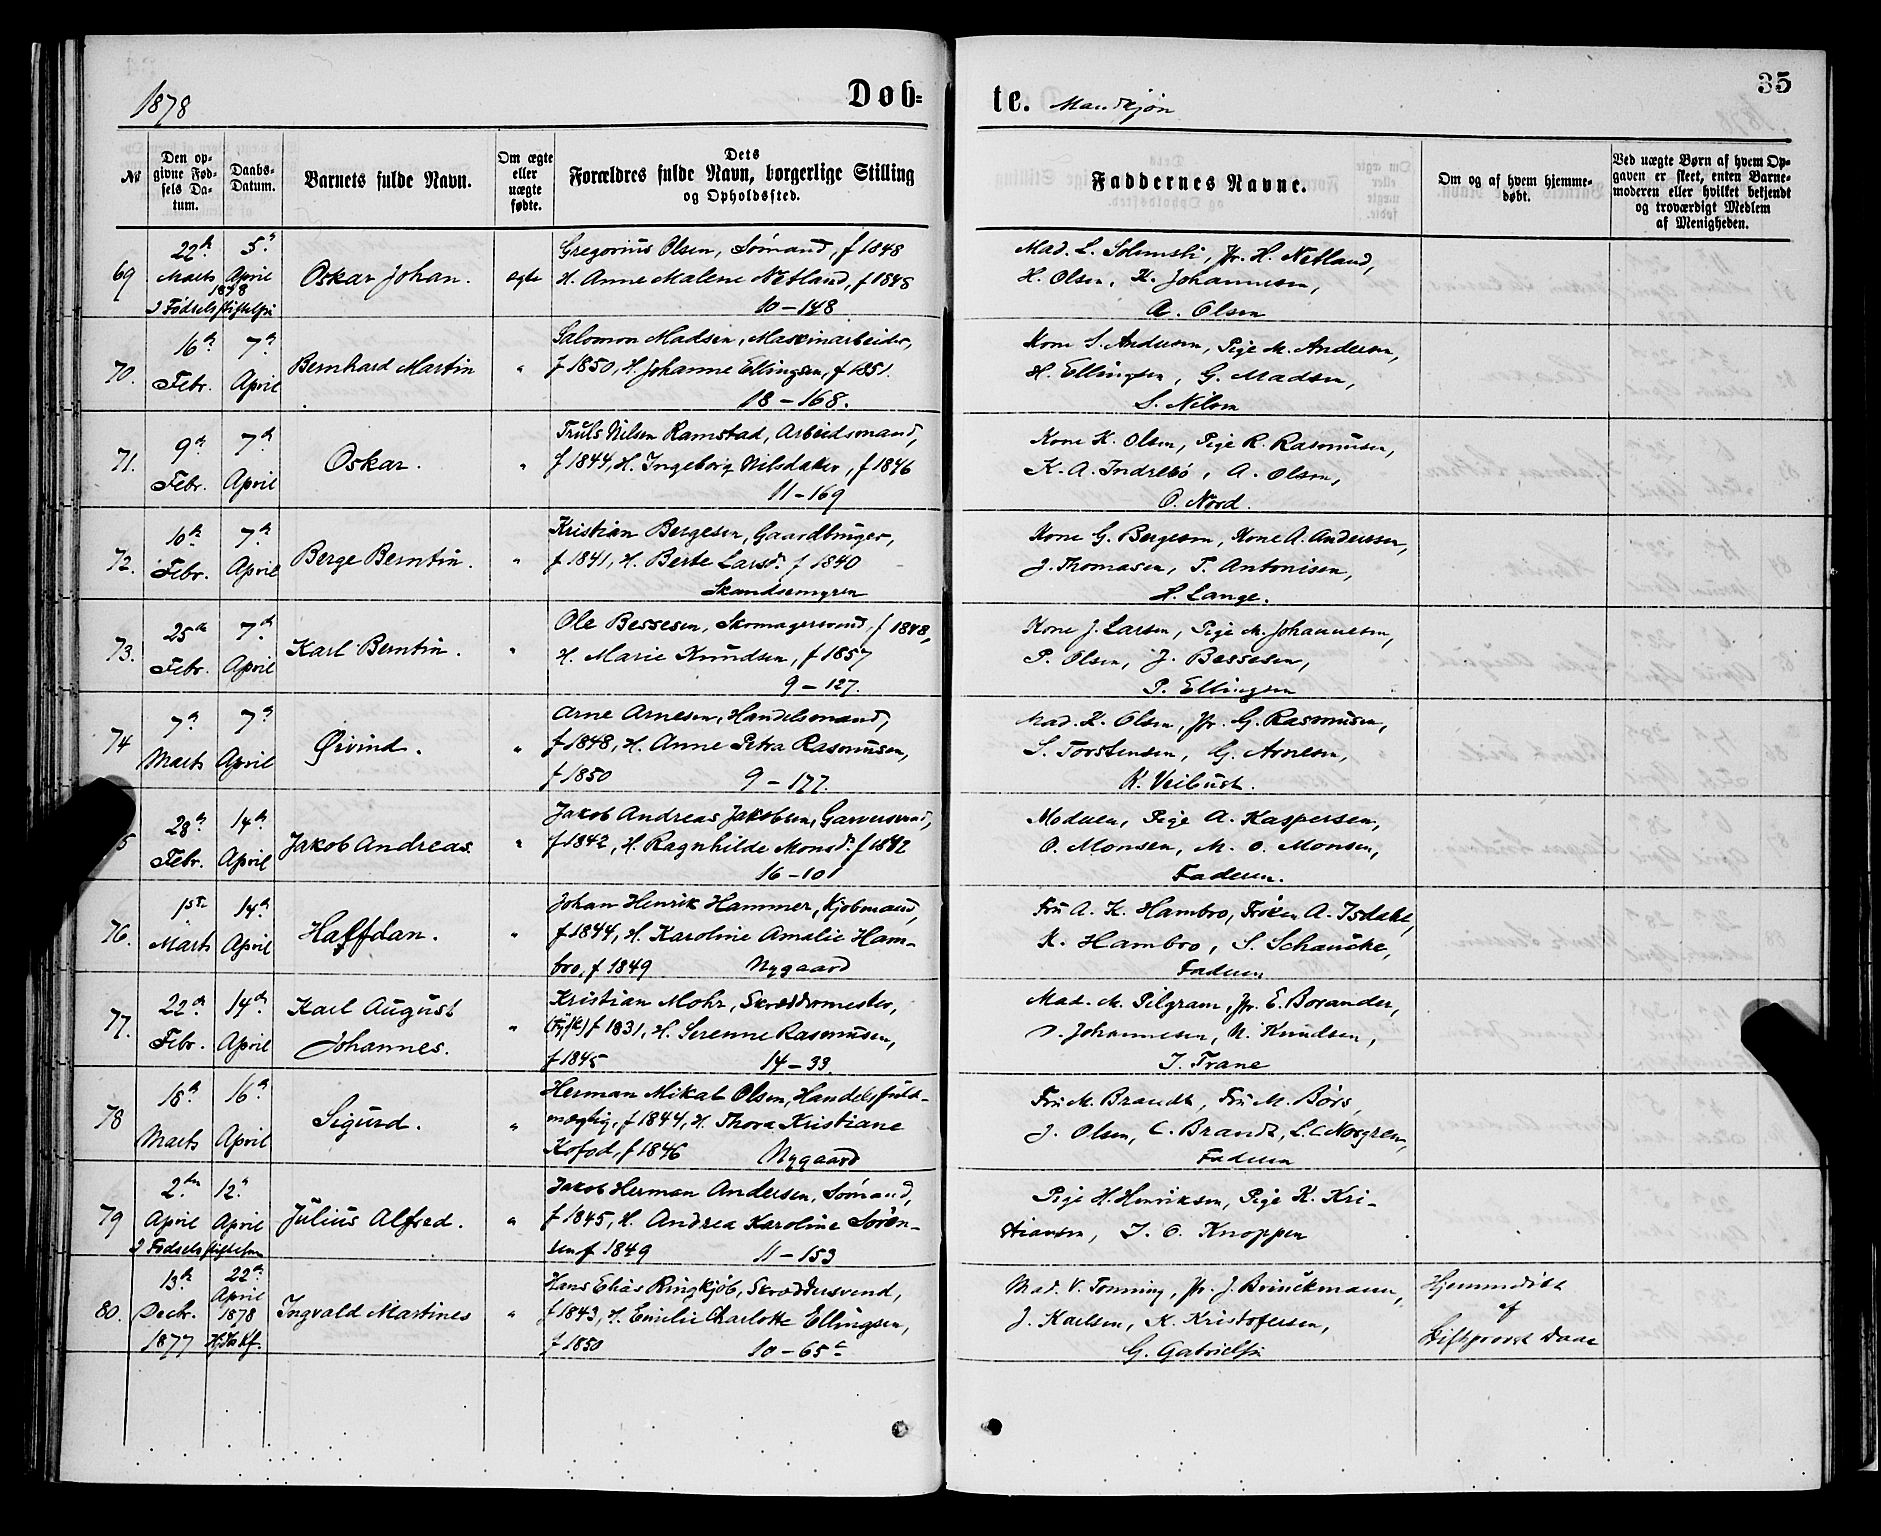 1878
Døb=
te. Mandkjøn
35
№
Den op-
givne Fød-
sels Da-
tum.
Daabs-
Datum.
Barnets fulde Navn.
Om ægte
eller
uægte
fødte.
Dets
Forældres fulde Navn, borgerlige Stilling
og Opholdssted.
Faddernes Navne.
Om og af hvem hjemme-
døbt.
Ved uægte Børn af hvem Op-
gaven er skeet, enten Barne-
moderen eller hvilket bekjendt
og troværdigt Medlem
af Menigheden.
69
22de Marts 1878
5te April
I Fødselsstiftelsen
Oskar Johan.
ægte
Gregorius Olsen, Sømand, f 1848
H. Anne Malene Netland, f 1848
10 – 148
Mad. L. , Jfr. H. Netland,
H. Olsen, K. Johannesen,
A. Olsen
70.
16de Febr.
7de April
Bernhard Martin
"
Salomon Madsen, Maskinarbeider,
f 1850, H. Johanne Ellingsen, f 1851.
18 – 168.
Kone S. Andersen, Pige M. Andersen,
H. Ellingsen, G. Madsen,
S. Nilsen
71.
9de Febr.
7de April
Oskar.
"
Truls Nilsen Ramstad, Arbeidsmand,
f 1844, H. Ingeborg Nilsdatter, f 1846
11 – 169
Kone K. Olsen, Pige R. Rasmusen,
K. A. Indrebø, A. Olsen,
O. Nord.
72.
16de Febr.
7de April
Berge Berntin.
"
Kristian Bergesen, Gaardbruger,
f 1841, H. Berte Larsd. f 1840
Skandsemyren
Kone G. Bergesen, Kone A. Andersen,
J. Thomasen, T. Antonisen,
H. Lange.
73.
25de Febr.
7de April
Karl Berntin.
"
Ole Bessesen, Skomagersvend, f 1848,
H. Marie Knudsen, f 1857
9 – 127.
Kone J. Larsen, Pige M. Johannesen,
P. Olsen, J. Bessesen,
P. Ellingsen
74
7de Marts
7de April
Øivind.
"
Arne Arnesen, Handelsmand,
f 1848, H. Anne Petra Rasmusen,
f 1850 9 – 177.
Mad. K. Olsen, Jfr. G. Rasmusen,
S. Torstensen, G. Arnesen,
K. Veibust.
5
28de Febr.
14de April
Jakob Andreas.
"
Jakob Andreas Jakobsen, Garversvend,
f 1842, H. Ragnhilde Monsd. f 1842
16 – 10
Moderen, Pige A. Kaspersen,
O. Monsen, M. O. Monsen,
Faderen.
76.
1ste Marts
14de April
Halfdan.
"
Johan Henrik Hammer, Kjøbmand,
f 1844, H. Karoline Amalie Ham-
bro, f 1849 Nygaard
Fru A. K. Hambro, Frøken A. Isdahl,
K. Hambro, S. Schancke,
Faderen
77.
22de Febr.
14de April
Karl August
Johannes.
"
Kristian Mohr, Skræddermester,
(Tysk) f 1831, H. Serenne Rasmusen,
f 1845 14 – 33.
Mad. M. Pilgram, Jfr. E. Borander,
Johannesen, N. Knudsen,
T. Trane
78
18de Marts
16de April
Sigurd.
"
Herman Mikal Olsen, Handelsfuld-
mægtig, f 1844, H. Thora Kristiane
Kofod, f 1846 Nygaard
Fru M. Brandt, Fru M. Børs,
J. Olsen, C. Brandt, L. C. Norgren,
Faderen
79
2den April
12te April
I Fødselsstiftelsen
Julius Alfred.
"
Jakob Herman Andersen, Sømand,
f 1845, H. Andrea Karoline Søren-
sen f 1849 11 – 153
Pige H. Henriksen, Pige K. Kri-
stiansen, T. O. Knoppen
80.
13de Decbr. 1877
22de April 1878
Ingvald Martines
"
Hans Elias Ringkjøb, Skræddersvend,
f 1843, H. Emilie Charlotte Ellingsen,
f 1850 10 – 65c
Mad. V. Tonning, Jfr. J. Brinckmann,
J. Karlsen, K. Kristofersen,
G. Gabrielsen
Hjemmedøbt
af
Stiftsprovst Daae